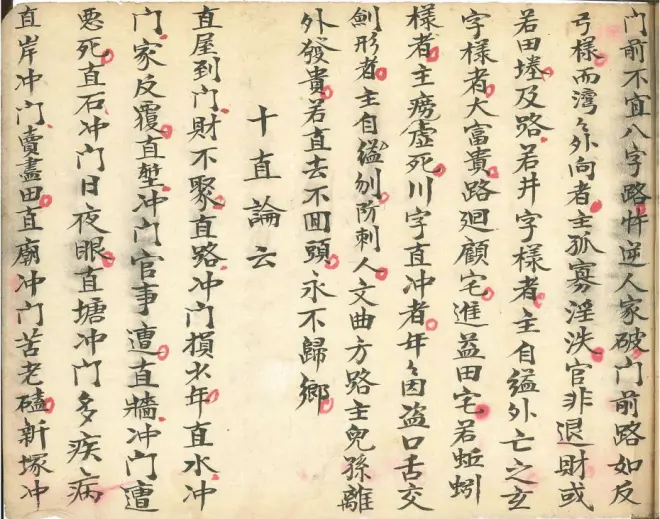 门前不宜八字路忤逆人家破门前路如反
弓樣而灣〻外向者主孤寡淫泆官非退財或
若田塍及路若井字樣者主自縊外亡之玄
字樣者大富貴路廻顧宅進益田宅若蚯蚓
樣者主癆虛死川字直冲者年〻因盜口舌交
劍形者主自縊刎防刺人文曲方路主兒孫離
外發貴若直去不囬頭永不歸鄉
十直論云
直屋到门財不聚直路冲门損少年直水冲
门家反覆直塹冲门官事遭直牆冲门遭
惡死直石冲门日夜眠直塘冲门多疾病
直岸冲门賣盡田直廟冲门苦老磕新塚冲